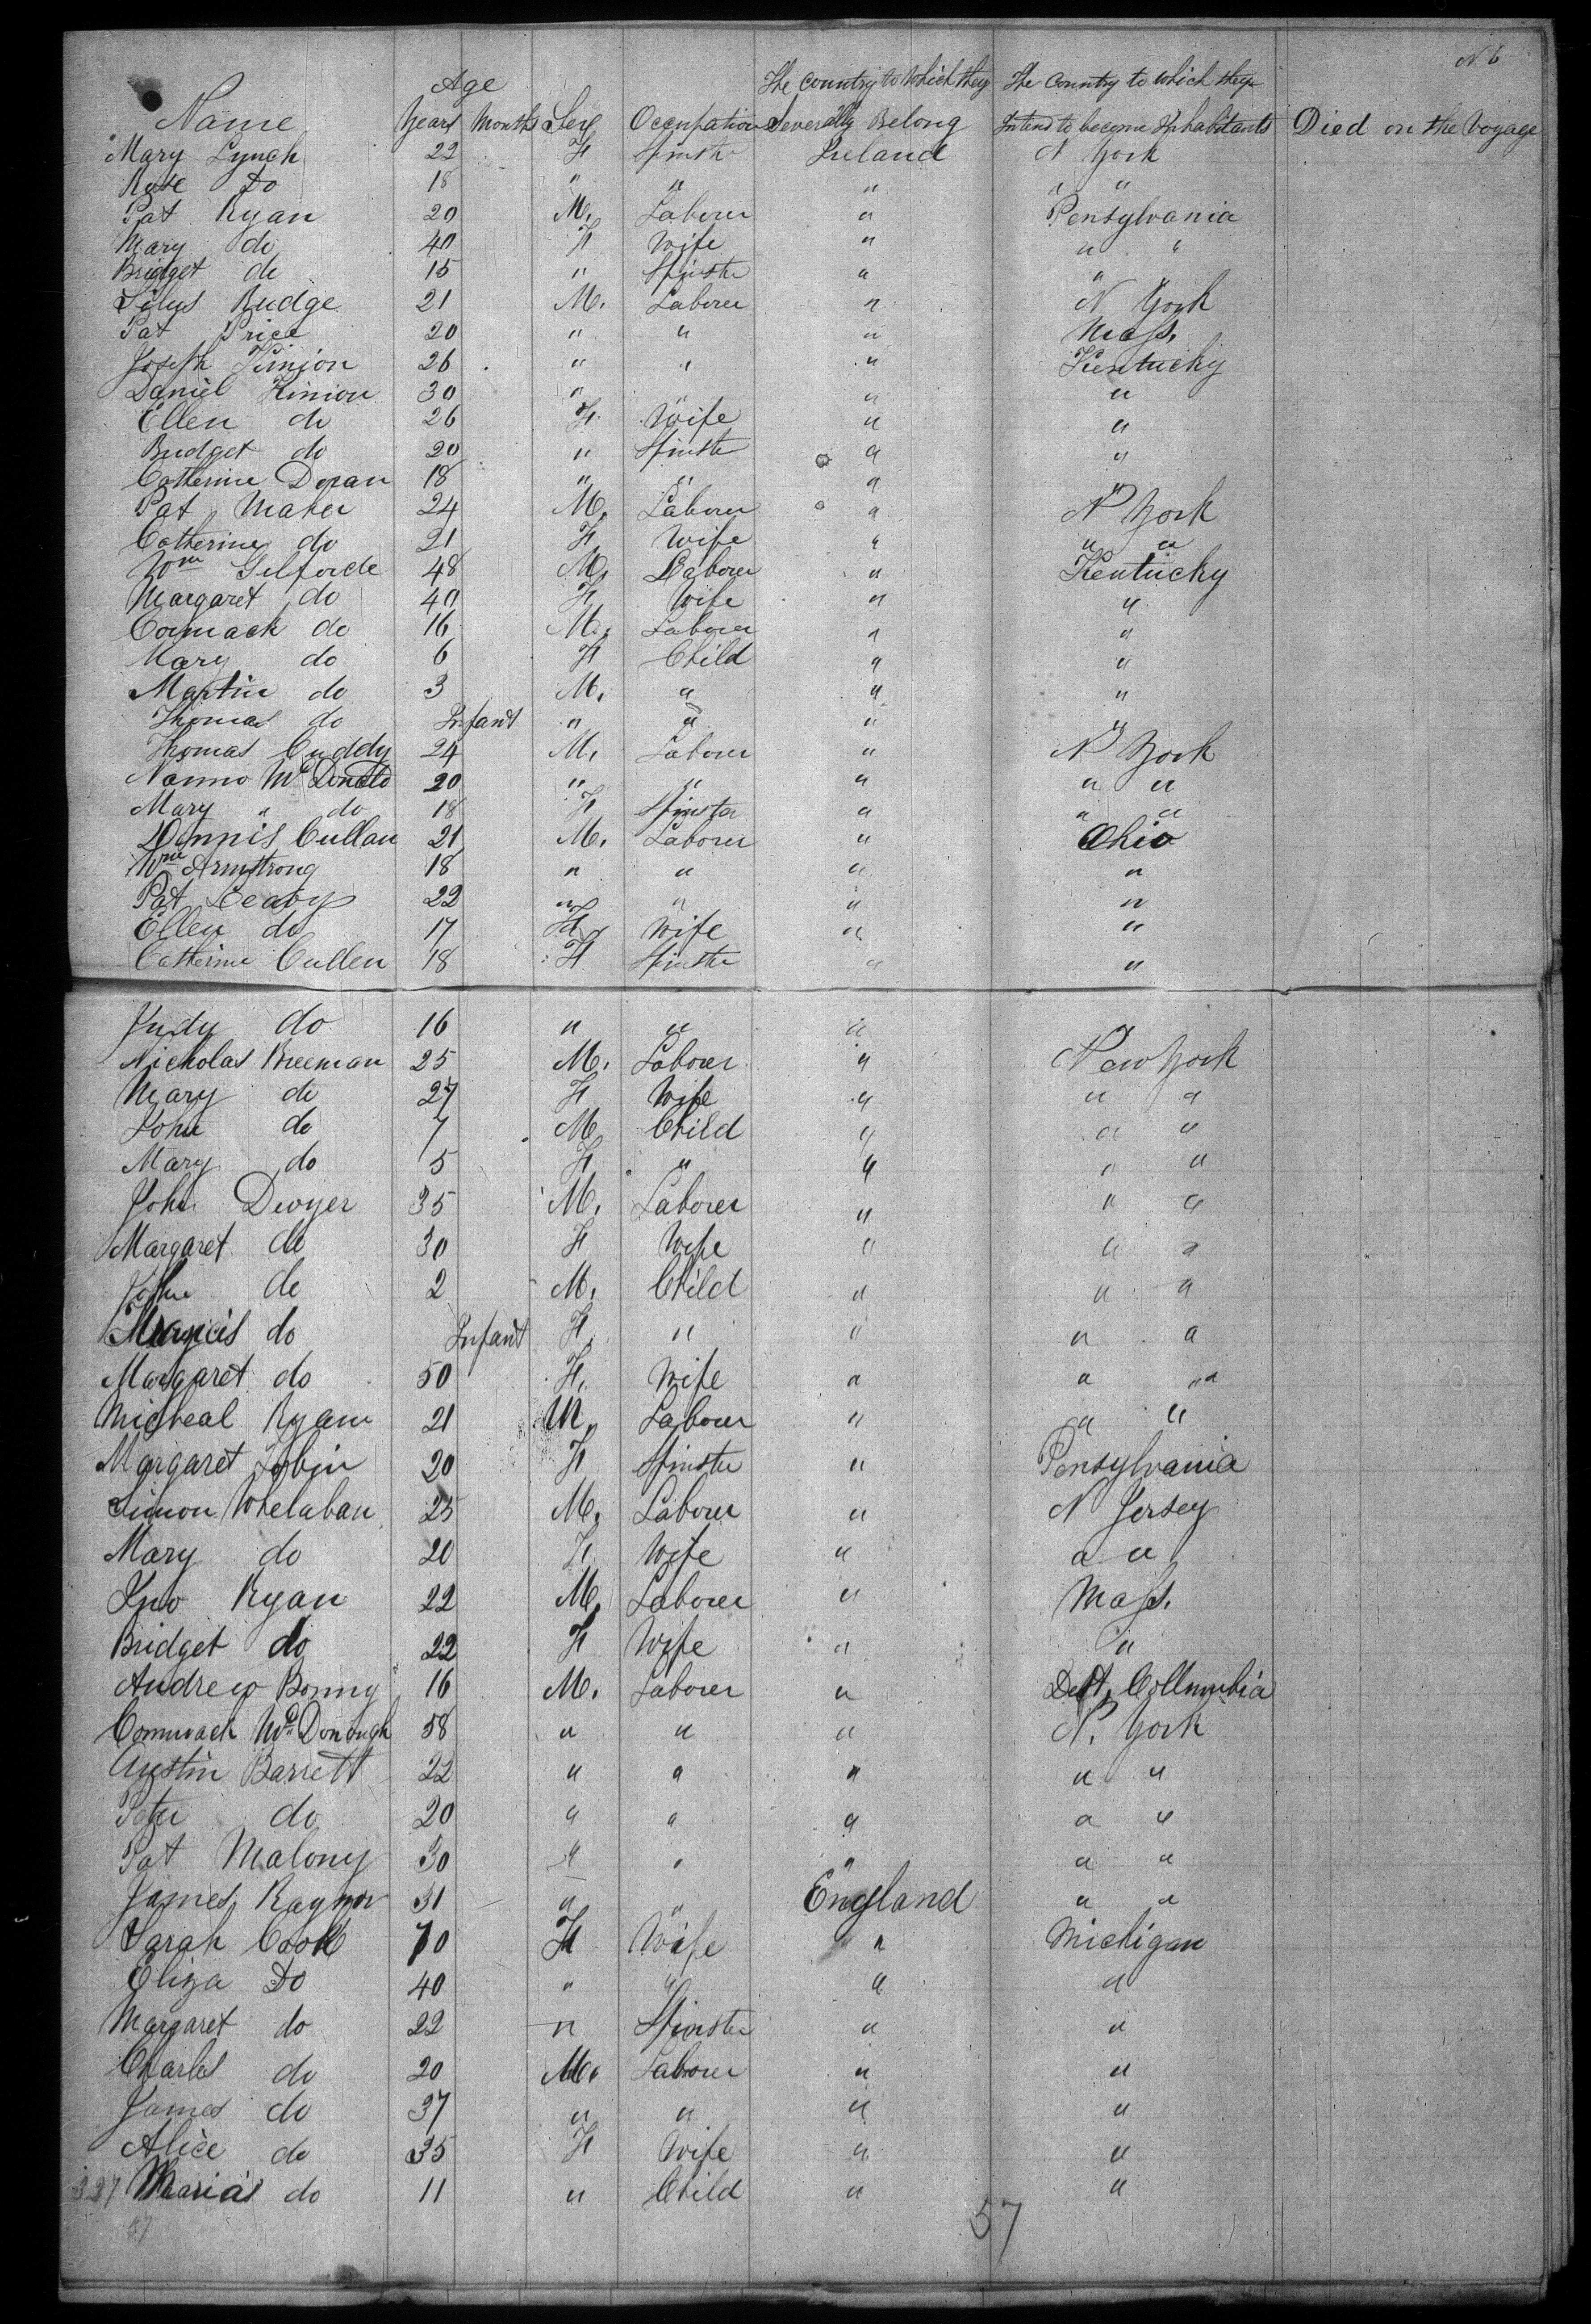 N 6
Name Age Years Months Sex Occupation The Country to Which they Severally Belong The Country to which they Intend to become Inhabitants Died on the Voyage
Mary Lynch 22 F Spinster Ireland N York
Rose Do 18 " " " " "
Pat Ryan 20 M. Laborer " Pensylvania
Mary do 40 F Wife " " "
Bridget do 15 " Spinster " "
Budge 21 M. Laborer " N York
Pat Price 20 " " " Mass.
Joseph Kinion 26 " " " Kentucky
Daniel Kinion 30 " " " "
Ellen do 26 F Wife " "
Budget do 20 " Spinster " "
Catherine Doran 18 " " " "
Pat Maher 24 M. Laborer " N York
Catherine do 21 F Wife " " "
Wm Gilforde 48 M. Laborer " Kentucky
Margaret do 40 F Wife " "
Cormack do 16 M. Laborer " "
Mary do 6 F Child " "
Martin do 3 M. " " "
Thomas do Infant " " " "
Thomas Cuddy 24 M. Laborer " N York
Mc Donald 20 " " " " "
Mary " do 18 F Spinster " " "
Dennis Cullan 21 M. Laborer " Ohio
Wm Armstrong 18 " " " "
Pat 22 " " " "
Ellen do 17 F Wife " "
Catherine Cullen 18 F Spinster " "
Judy do 16 " " "
Nicholas Breeman 25 M. Laborer " New York
Mary do 27 F Wife " " "
John do 7 M Child " " "
Mary do 5 F " " " "
John Dwyer 35 M. Laborer " " "
Margaret do 30 F Wife " " "
John do 2 M. Child " " "
do Infant F " " " "
Margaret do 50 F. Wife " " "
Micheal Ryan 21 M. Laborer " " "
Margaret Tobin 20 F Spinster " Pensylvania
Simon Whelahan 25 M. Laborer " N Jersey
Mary do 20 F Wife " " "
Jno Ryan 22 M. Laborer " Mass.
Bridget do 22 F Wife " "
Andrew Bonny 16 M. Laborer " Dist, Collumbia
Commack McDonough 58 " " " N. York
Austin Barrett 22 " " " " "
Peter do 20 " " " " "
Pat Malony 30 " " " " "
James Raynor 31 " " England " "
Sarah Cook 70 F Wife " Michigan
Eliza Do 40 " " " "
Margaret do 22 " Spinster " "
Charles do 20 M. Laborer " "
James do 37 " " " "
Alice do 35 F Wife " "
Maria do 11 " Child " "
57